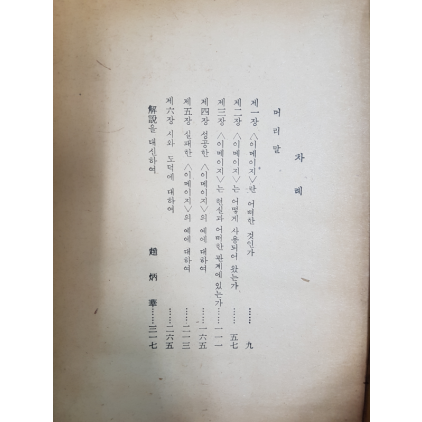 차 례
머리말
제一장 〈이메이지〉란 어떠한 것인가 …… 九
제二장 〈이메이지〉는 어떻게 사용되어 왔는가 …… 五七
제三장 〈이메이지〉는 현실과 어떠한 관계에 있는가 …… 一一一
제四장 성공한 〈이메이지〉의 예에 대하여 …… 一六五
제五장 실패한 〈이메이지〉의 예에 대하여 …… 二一三
제六장 시와 도덕에 대하여 …… 二六五
解說을 대신하여 趙炳華 …… 三一七